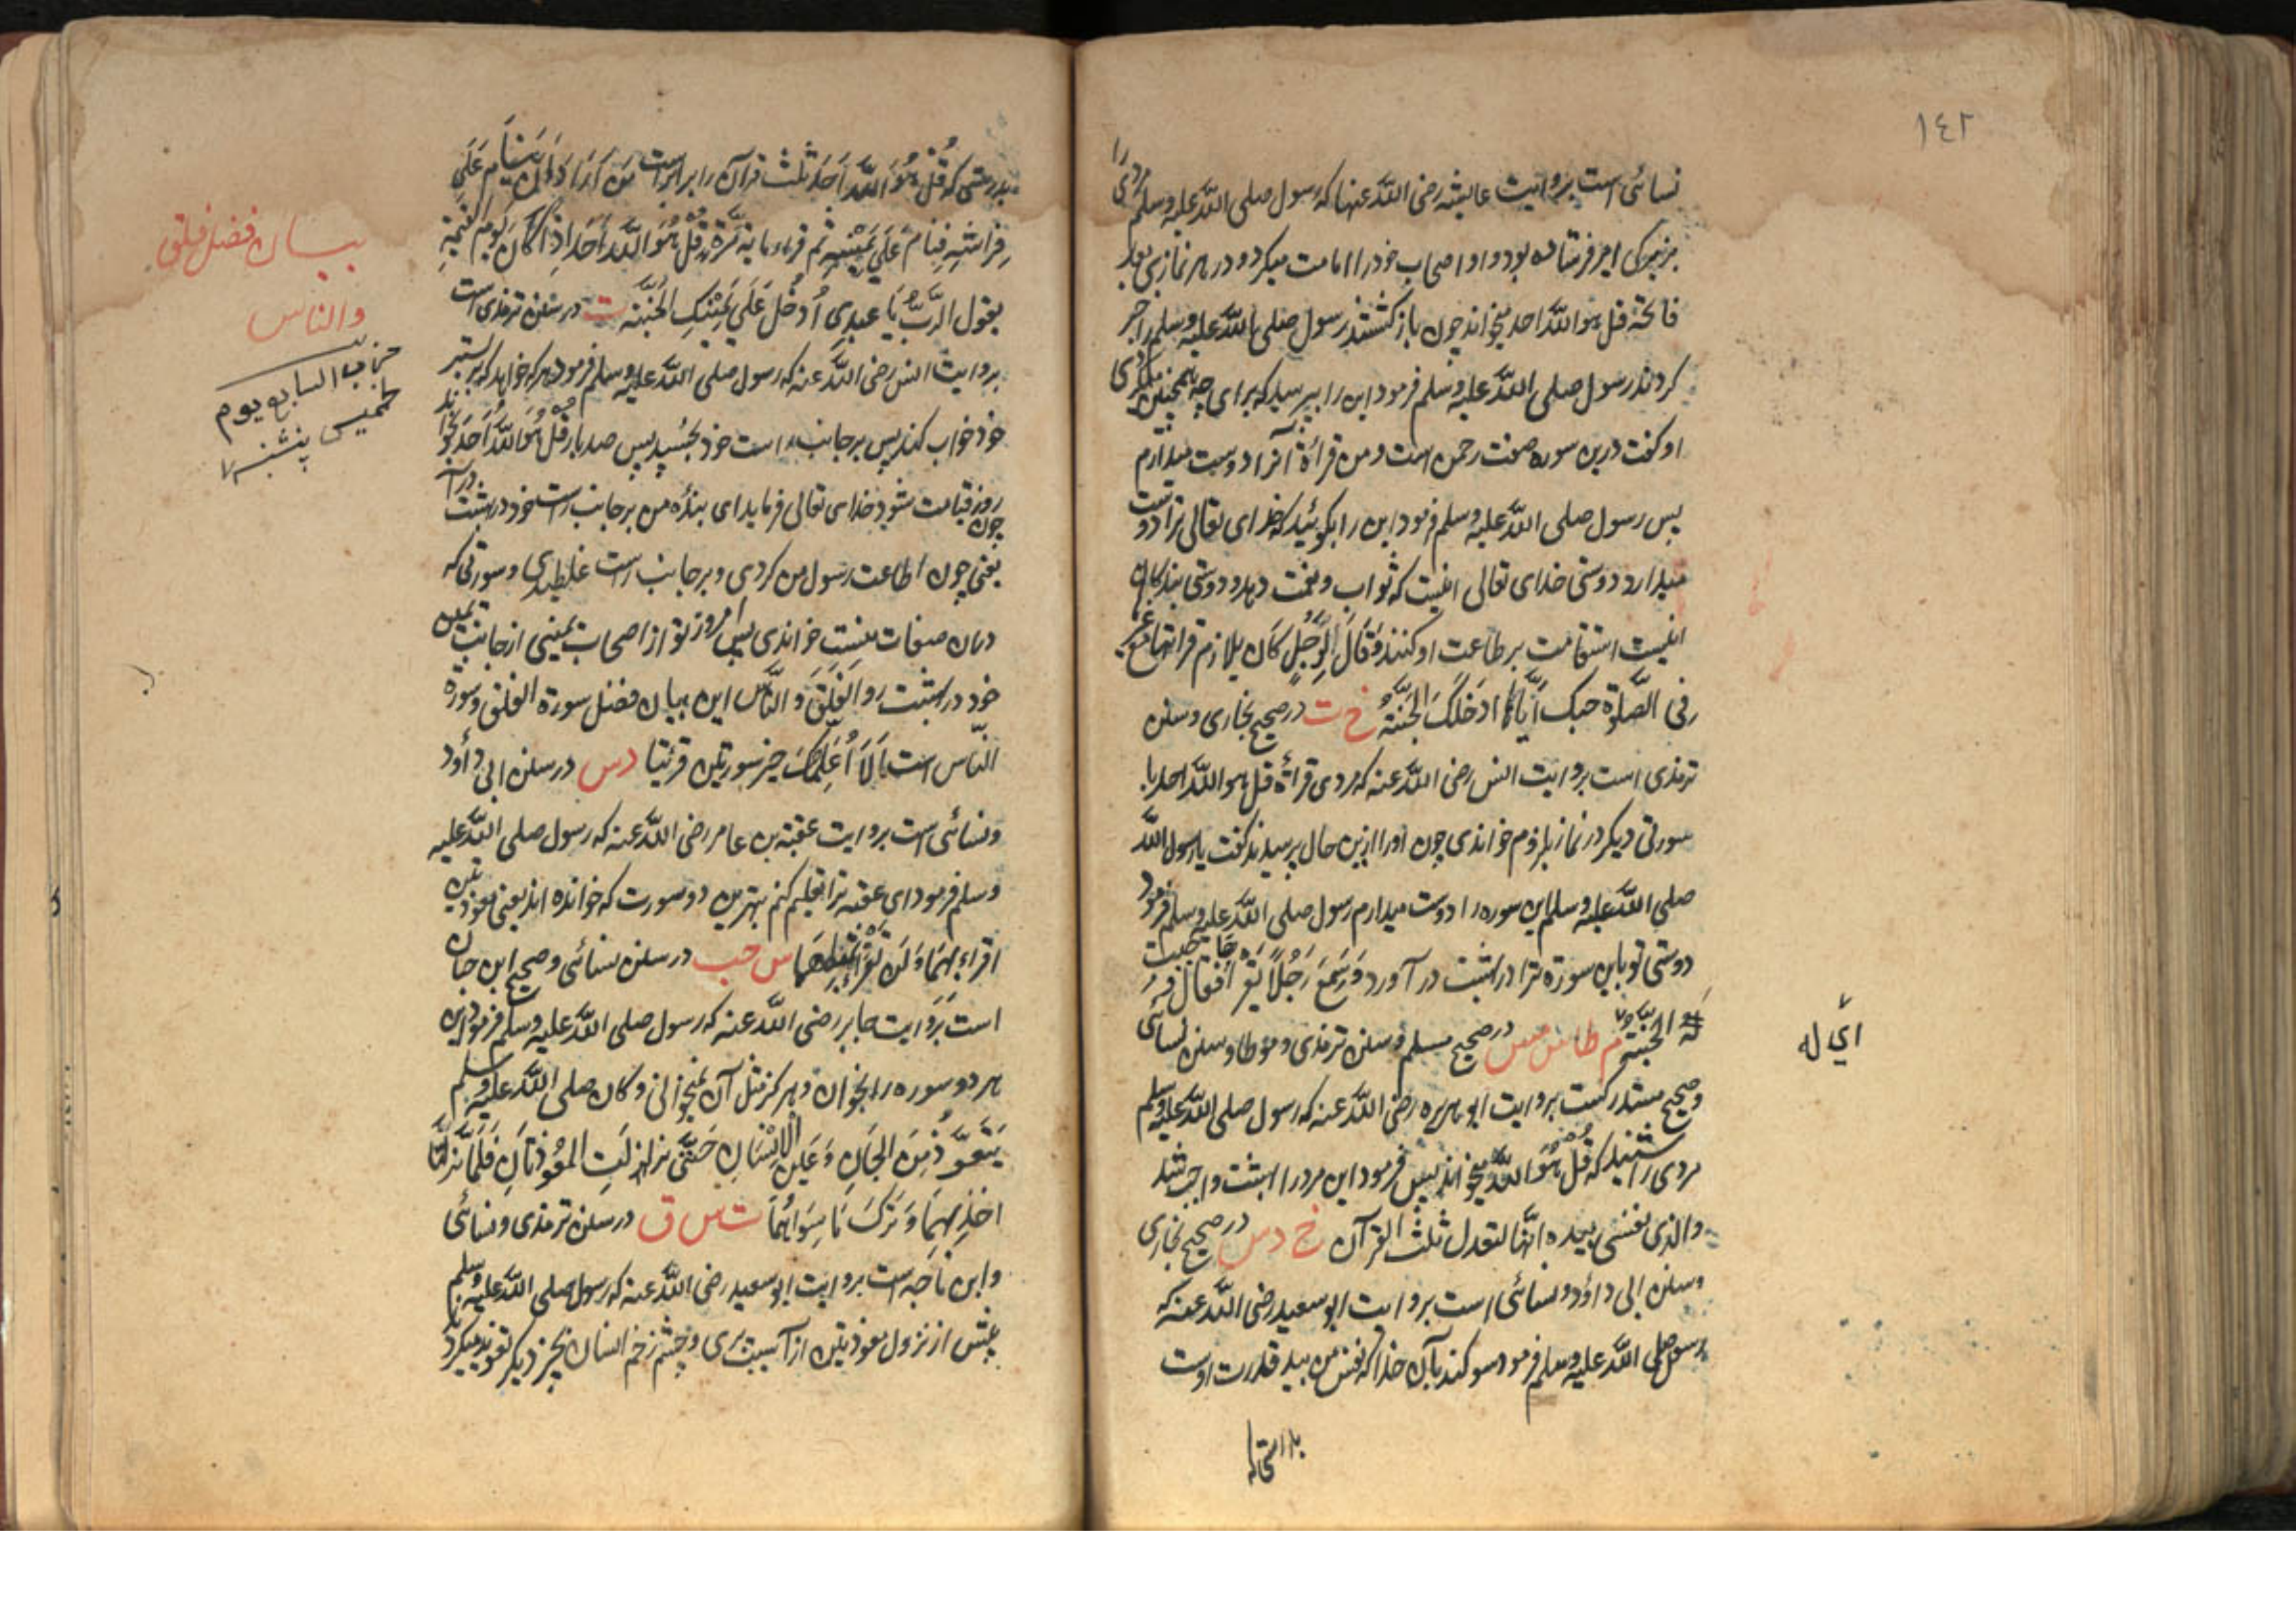 ١٤٢
نسائی است بروایت عایشه رضی الله عنها که رسول صلی الله علیه وسلم مردی را
بزیرکی امیر فرستاده بود و او اصحاب خود را امامت میکرد و در هر نمازی بعد
فاتحة قل هو الله احد میخواند چون باز کشتند رسول صلی الله علیه وسلم را خبر
کردند رسول صلی الله علیه وسلم فرمود این را بپرسید که برای چه همچنین میکردی
او کفت درین سوره صفت رحمن است و من قرائة آنرا دوست میدارم
پس رسول صلی الله علیه وسلم فرمود این را بکوئید که خدای تعالی ترا دوست
میدارد دوستی خدای تعالی اینست که ثواب و نعمت دهد و دوستی بندکان
اینست استقامت بر طاعت او کنند وَقَالَ لِرَجُلٍ كَان يلازم قراتها مع غيرها
فی الصَّلوٰة حبك اَیَّاهَا ادخَلَكَ الجَنَّةَ خ ت در صحیح بخاری و سنن
ترمذی است بروایت انس رضی الله عنه که مردی قرائة قل هو الله احد با
سورتی دیکر در نماز بلزوم خواندی چون او را ازین حال پرسیدند کفت یا رسول الله
صلی الله علیه وسلم این سوره را دوست میدارم رسول صلی الله علیه وسلم فرمود
دوستی تو باین سوره ترا در بهشت در آورد وَسَمِعَ رَجُلاً يَقْرَاهَا فَقَالَ وجبت
لَهُ الجنَّةُ م ط ت س مس در صحیح مسلم و سنن ترمذی و موطا و سنن نسائی
و صحیح مستدرکست بروایت ابو هریره رضی الله عنه که رسول صلی الله علیه وسلم
مردی را شنید که قُلْ هُوَ اللَّهُ میخواند پس فرمود این مرد را بهشت واجب شد
والذی نفسی بیده انّها لتعدل ثلث القرآن خ د س در صحیح بخاری
و سنن ابی داؤد و نسائی است بروایت ابو سعید رضی الله عنه که
رسول صلی الله علیه وسلم فرمود سوکند بآن خدا که نفس من بید قدرت اوست
اي له
بدرستی که قُلْ هُوَ اللَّهُ اَحَدٌ ثلث قرآن را برابر است مَن اَرَادَ اَن يَنَامَ عَلَى
فِرَاشِهِ فَنَامَ عَلَى يَمِيْنِهِ ثم قرء مایة مَرَّة قُلْ هُوَ اللَّهُ أَحَدٌ اِذَا كَانَ يَوم القيمة
يقول الرَّبُّ يَا عبدي أُدْخُلْ عَلَى يَمِيْنِكَ الْجَنَّة ت در سنن ترمذی است
بروایت انس رضی الله عنه که رسول صلی الله علیه وسلم فرمود هر که خواهد که بر بستر
خود خواب کند پس بر جانب راست خود بخسپد پس صد بار قُلْ هُوَ اللَّهُ اَحَدٌ بخواند
چون روز قیامت شود خدای تعالی فرماید ای بندهٔ من بر جانب راست خود در بهشت در آ
یعنی چون اطاعت رسول من کردی و بر جانب راست غلطیدی و سورتی که
دران صفات منست خواندی پس امروز تو از اصحاب یمینی از جانب یمین
خود در بهشت رو الفَلَقَ وَ النَّاس این بیان فضل سورة الفلق و سورة
النّاس است اَلَا اُعَلِّمُكَ خير سورتين قرئتا د س در سنن ابی داؤد
و نسائی است بروایت عقبة بن عامر رضی الله عنه که رسول صلی الله علیه
وسلم فرمود ای عقبه ترا تعلیم کنم بهترین دو سورت که خوانده اند یعنی معوذتین
اقراء بهِمَا وَلَن تَقْرَأَ بِمِثْلِهِمَا س حب در سنن نسائی و صحیح ابن حبان
است بروایت جابر رضی الله عنه که رسول صلی الله علیه وسلم فرمود این
هر دو سوره را بخوان و هرکز مثل آن نخوانی و كان صلى الله عليه وسلم
يَتَعَوَّذُ مِنَ الجَانِ وَعَينِ الاِنْسَانِ حَتَّى نزلت المعُوذتَانِ فَلَمَّا نزلتا
اخذ بِهِمَا وَ تَرَكَ مَا سِوَاهُمَا ت س ق در سنن ترمذی و نسائی
و ابن ماجه است بروایت ابو سعید رضی الله عنه که رسول صلی الله علیه وسلم
پیش از نزول معوذتین از آسیب پری و چشم زخم انسان بچیز دیکر تعوذ میکرد
بیان فضل فلق
والناس
حزب السابع یوم
خمیس پنشنبه